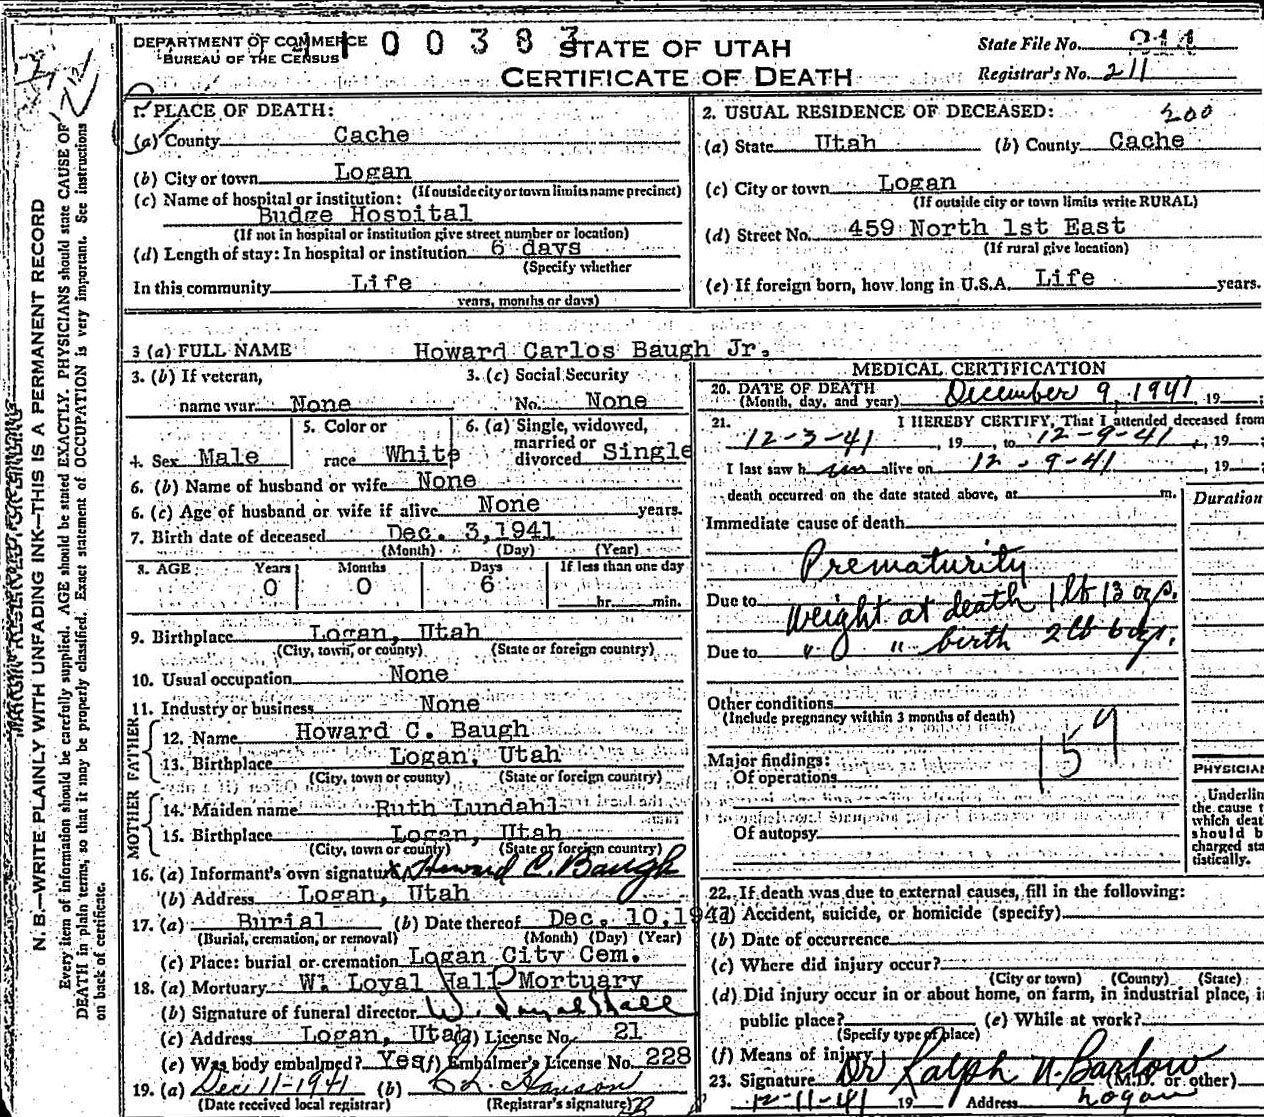 DEPARTMENT OF COMMERCE
BUREAU OF THE CENSUS
1 00383
STATE OF UTAH
CERTIFICATE OF DEATH
State File No. 211
Registrar's No. 211
1. PLACE OF DEATH:
(a) County Cache
(b) City or town Logan
(If outside city or town limits name precinct)
(c) Name of hospital or institution:
Budge Hospital
(If not in hospital or institution give street number or location)
(d) Length of stay: In hospital or institution 6 days
(Specify whether
In this community Life
years, months or days)
2. USUAL RESIDENCE OF DECEASED: 200
(a) State Utah (b) County Cache
(c) City or town Logan
(If outside city or town limits write RURAL)
(d) Street No. 459 North 1st East
(If rural give location)
(e) If foreign born, how long in U.S.A. Life years.
3 (a) FULL NAME Howard Carlos Baugh Jr.
3. (b) If veteran, 3. (c) Social Security
name war None No. None
5. Color or 6. (a) Single, widowed,
married or
4. Sex Male race White divorced Single
6. (b) Name of husband or wife None
6. (c) Age of husband or wife if alive None years.
7. Birth date of deceased Dec. 3, 1941
(Month) (Day) (Year)
8. AGE Years Months Days If less than one day
0 0 6 hr. min.
9. Birthplace Logan, Utah
(City, town, or county) (State or foreign country)
10. Usual occupation None
11. Industry or business None
FATHER
12. Name Howard C. Baugh
13. Birthplace Logan, Utah
(City, town or county) (State or foreign country)
MOTHER
14. Maiden name Ruth Lundahl
15. Birthplace Logan, Utah
(City, town or county) (State or foreign country)
16. (a) Informant's own signature X Howard C. Baugh
(b) Address Logan, Utah
17. (a) Burial (b) Date thereof Dec. 10, 1941
(Burial, cremation, or removal) (Month) (Day) (Year)
(c) Place: burial or cremation Logan City Cem.
18. (a) Mortuary W. Loyal Hall Mortuary
(b) Signature of funeral director W. Loyal Hall
(c) Address Logan, Utah (d) License No. 21
(e) Was body embalmed? Yes (f) Embalmer's License No. 228
19. (a) Dec 11-1941 (b) Hanson
(Date received local registrar) (Registrar's signature)
MEDICAL CERTIFICATION
20. DATE OF DEATH
(Month, day, and year) December 9, 1941, 19
21. I HEREBY CERTIFY, That I attended deceased from
12-3-41, 19, to 12-9-41, 19;
I last saw him alive on 12-9-41, 19;
death occurred on the date stated above, at m. Duration
Immediate cause of death
Prematurity
Due to Weight at death 1 lb 13 ozs.
Due to " " birth 2 lb 6 ozs.
Other conditions
(Include pregnancy within 3 months of death)
159
Major findings:
Of operations
Of autopsy
PHYSICIAN
Underlin
the cause t
which deat
should b
charged sta
tistically.
22. If death was due to external causes, fill in the following:
(a) Accident, suicide, or homicide (specify)
(b) Date of occurrence
(c) Where did injury occur?
(City or town) (County) (State)
(d) Did injury occur in or about home, on farm, in industrial place, i
public place? (e) While at work?
(Specify type of place)
(f) Means of injury
23. Signature Dr Ralph N. Barlow
(M.D. or other)
12-11-41 19 Address Logan
MARGIN RESERVED FOR BINDING
N. B.—WRITE PLAINLY WITH UNFADING INK—THIS IS A PERMANENT RECORD
Every item of information should be carefully supplied. AGE should be stated EXACTLY. PHYSICIANS should state CAUSE OF
DEATH in plain terms, so that it may be properly classified. Exact statement of OCCUPATION is very important. See instructions
on back of certificate.